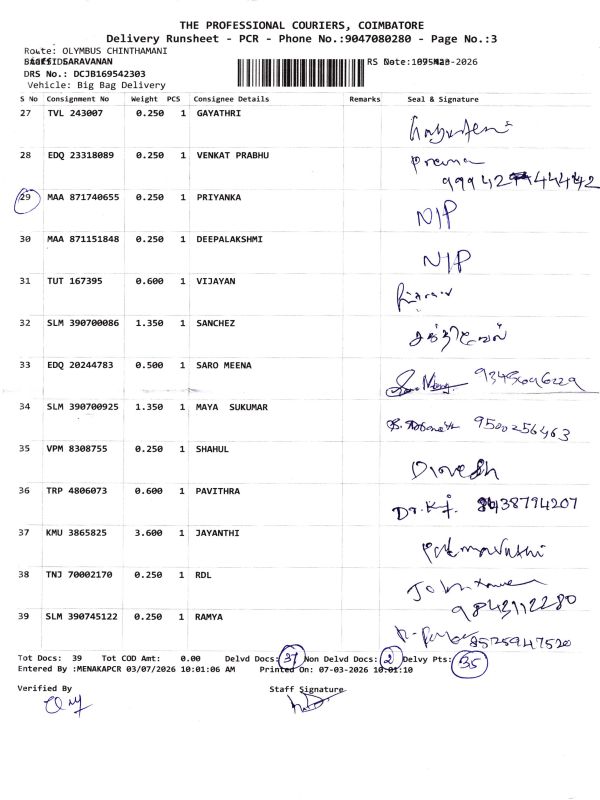 THE PROFESSIONAL COURIERS, COIMBATORE
Delivery Runsheet - PCR - Phone No.:9047080280 - Page No.:3
Route: OLYMBUS CHINTHAMANI
SARAVANAN
RS Date: -2026
DRS No.: DCJB169542303
Vehicle: Big Bag Delivery
S No Consignment No Weight PCS Consignee Details Remarks Seal & Signature
27 TVL 243007 0.250 1 GAYATHRI
28 EDQ 23318089 0.250 1 VENKAT PRABHU Prema
29 MAA 871740655 0.250 1 PRIYANKA N/P
30 MAA 871151848 0.250 1 DEEPALAKSHMI N/P
31 TUT 167395 0.600 1 VIJAYAN
32 SLM 390700086 1.350 1 SANCHEZ
33 EDQ 20244783 0.500 1 SARO MEENA
34 SLM 390700925 1.350 1 MAYA SUKUMAR 9500256463
35 VPM 8308755 0.250 1 SHAHUL
36 TRP 4806073 0.600 1 PAVITHRA 8438794207
37 KMU 3865825 3.600 1 JAYANTHI
38 TNJ 70002170 0.250 1 RDL
9843112280
39 SLM 390745122 0.250 1 RAMYA 8525947520
Tot Docs: 39 Tot COD Amt: 0.00 Delvd Docs: 37 Non Delvd Docs: 2 Delvy Pts: 35
Entered By :MENAKAPCR 03/07/2026 10:01:06 AM Printed On: 07-03-2026 10:01:10
Verified By Staff Signature